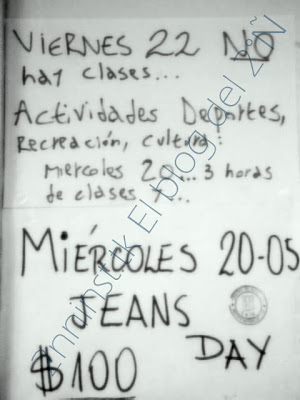 VIERNES 22 NO
hay clases...
Actividades Deportes,
Recreación, cultura:
Miercoles 20...3 horas
de clases y...
MIÉRCOLES 20-05
JEANS
DAY
$100
El blog del 2ºÑ